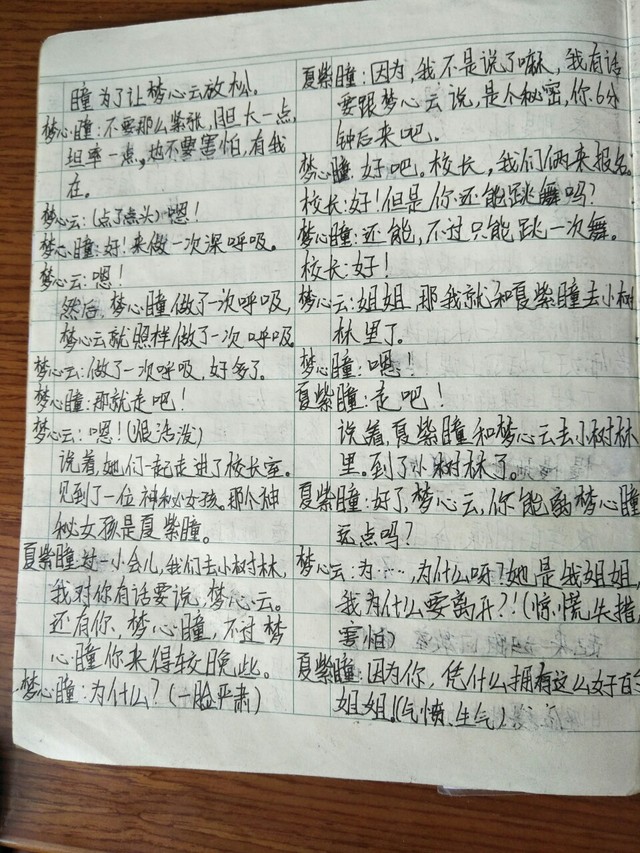 瞳为了让梦心云放松。
梦心瞳:不要那么紧张,胆大一点,
坦率一点,也不要害怕,有我
在。
梦心云:(点了点头)嗯!
梦心瞳:好!来做一次深呼吸。
梦心云:嗯!
然后,梦心瞳做了一次呼吸,
梦心云就照样做了一次呼吸。
梦心云:做了一次呼吸,好多了。
梦心瞳:那就走吧!
梦心云:嗯!(很活泼)
说着,她们一起走进了校长室。
见到了一位神秘女孩。那个神
秘女孩是夏紫瞳。
夏紫瞳:过一小会儿,我们去小树林,
我对你有话要说,梦心云。
还有你,梦心瞳,不过梦
心瞳你来得较晚些。
梦心瞳:为什么?(一脸严肃)
夏紫瞳:因为,我不是说了嘛,我有话
要跟梦心云说,是个秘密,你6分
钟后来吧。
梦心瞳:好吧,校长,我们俩来报名。
校长:好!但是你还能跳舞吗?
梦心瞳:还能,不过只能跳一次舞。
校长:好!
梦心云:姐姐,那我就和夏紫瞳去小树
林里了。
梦心瞳:嗯!
夏紫瞳:走吧!
说着,夏紫瞳和梦心云去小树林
里。到了小树林了。
夏紫瞳:好了,梦心云,你能离梦心瞳
远点吗?
梦心云:为……,为什么呀?她是我姐姐,
我为什么要离开?!(惊慌失措,
害怕)
夏紫瞳:因为你,凭什么拥有这么好的
姐姐!(气愤、生气)